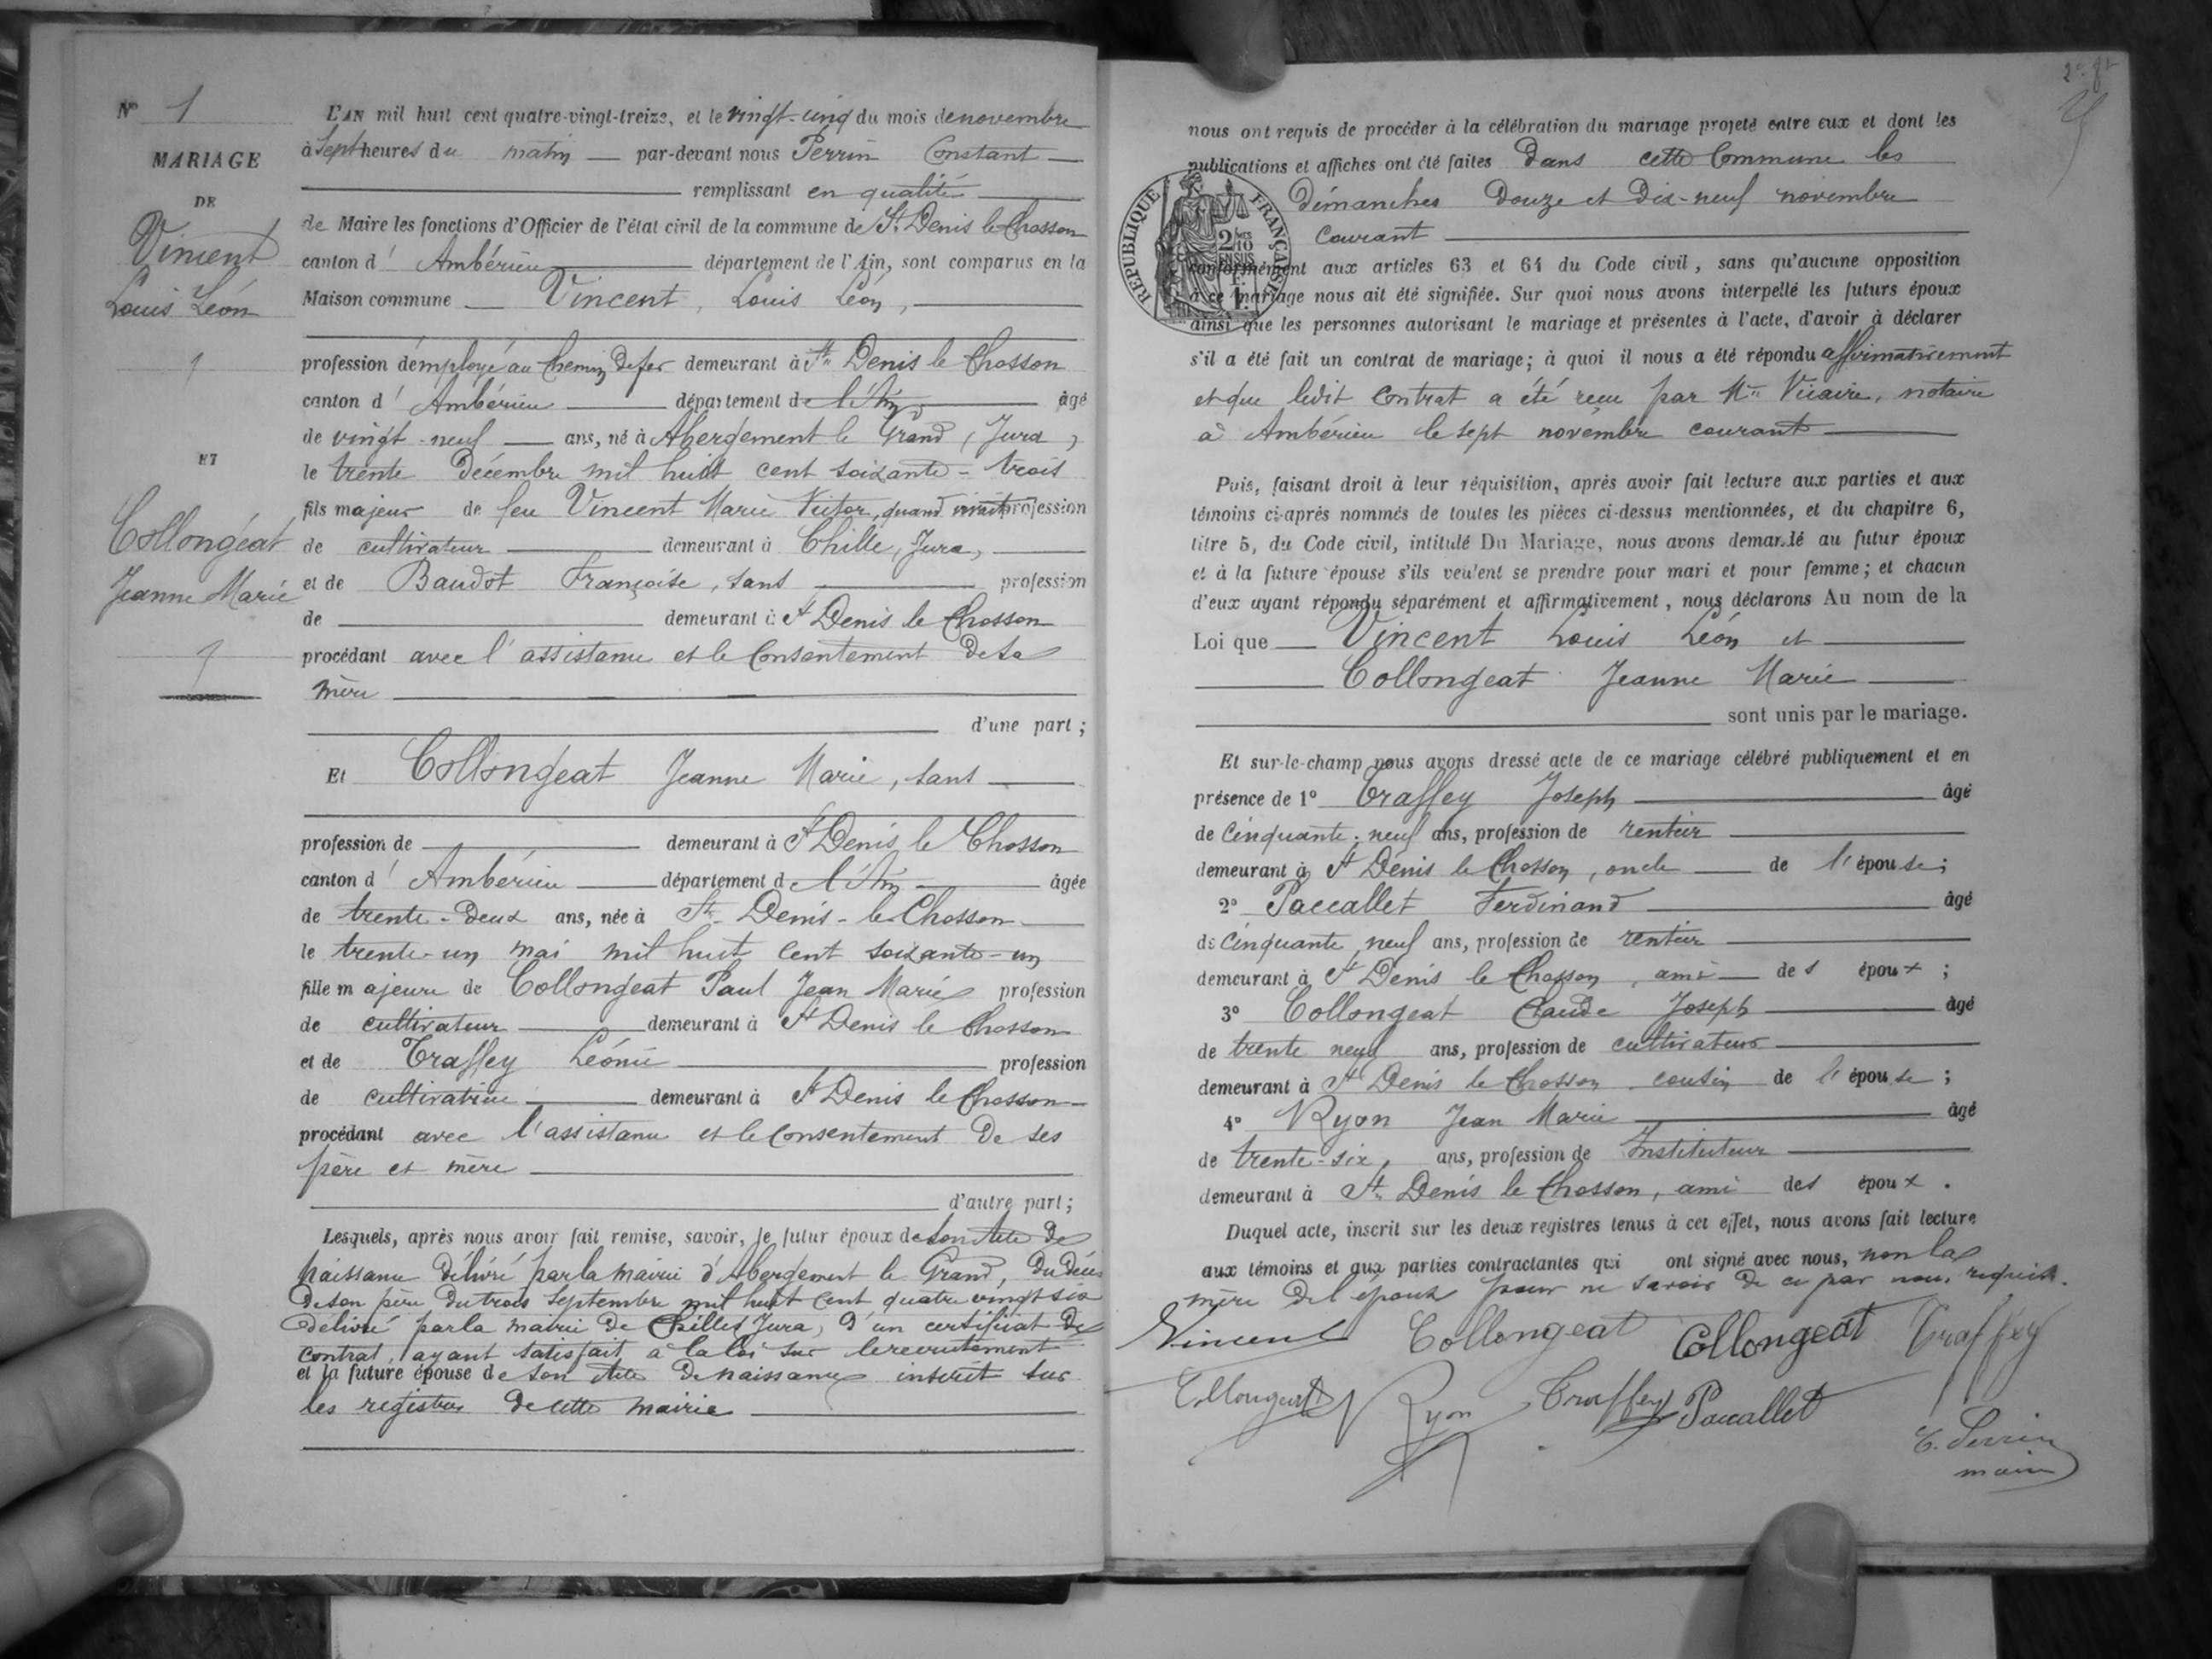 N° 1
MARIAGE
DE
Vincent
Louis Léon
ET
Collongeat
Jeanne Marie
L'AN mil huit cent quatre-vingt-treize, et le vingt-cinq du mois de novembre
à sept heures du matin par-devant nous Perrin Constant
remplissant en qualité
de Maire les fonctions d'Officier de l'état civil de la commune de St Denis le Chosson
canton d'Ambérieu département de l'Ain, sont comparus en la
Maison commune Vincent, Louis Léon,
profession d'employé au Chemin de fer demeurant à St Denis le Chosson
canton d'Ambérieu département de l'Ain âgé
de vingt-neuf ans, né à Abergement le Grand (Jura)
le trente Décembre mil huit cent soixante-trois
fils majeur de feu Vincent Marie Victor, quand vivait profession
de cultivateur demeurant à Chille, Jura,
et de Baudot Françoise, sans profession
de demeurant à St Denis le Chosson
procédant avec l'assistance et le Consentement de sa
mère
d'une part;
Et Collongeat Jeanne Marie, sans
profession de demeurant à St Denis le Chosson
canton d'Ambérieu département de l'Ain âgée
de trente-deux ans, née à St Denis-le-Chosson
le trente-un mai mil huit cent soixante-un
fille majeure de Collongeat Paul Jean Marie profession
de cultivateur demeurant à St Denis le Chosson
et de Traffey Léonie profession
de cultivatrice demeurant à St Denis le Chosson
procédant avec l'assistance et le Consentement de ses
père et mère
d'autre part;
Lesquels, après nous avoir fait remise, savoir, le futur époux de son Acte de
naissance délivré par la mairie d'Abergement le Grand, du décès
de son père du trois Septembre mil huit cent quatre vingt six
délivré par la mairie de Chilles Jura, d'un certificat de
contrat, ayant satisfait à la loi sur le recrutement
et la future épouse de son Acte de naissance inscrit sur
les registres de cette mairie
nous ont requis de procéder à la célébration du mariage projeté entre eux et dont les
publications et affiches ont été faites dans cette Commune les
Dimanches Douze et Dix-neuf novembre
courant
conformément aux articles 63 et 64 du Code civil, sans qu'aucune opposition
à ce mariage nous ait été signifiée. Sur quoi nous avons interpellé les futurs époux
ainsi que les personnes autorisant le mariage et présentes à l'acte, d'avoir à déclarer
s'il a été fait un contrat de mariage; à quoi il nous a été répondu affirmativement
et que ledit Contrat a été reçu par Me Vicaire, notaire
à Ambérieu le sept novembre courant
Puis, faisant droit à leur réquisition, après avoir fait lecture aux parties et aux
témoins ci-après nommés de toutes les pièces ci-dessus mentionnées, et du chapitre 6,
titre 5, du Code civil, intitulé Du Mariage, nous avons demandé au futur époux
et à la future épouse s'ils veulent se prendre pour mari et pour femme; et chacun
d'eux ayant répondu séparément et affirmativement, nous déclarons Au nom de la
Loi que Vincent Louis Léon et
Collongeat Jeanne Marie
sont unis par le mariage.
Et sur-le-champ nous avons dressé acte de ce mariage célébré publiquement et en
présence de 1° Traffey Joseph âgé
de Cinquante-neuf ans, profession de rentier
demeurant à St Denis le Chosson, oncle de l'épouse;
2° Paccallet Ferdinand âgé
de Cinquante neuf ans, profession de rentier
demeurant à St Denis le Chosson, ami des époux;
3° Collongeat Claude Joseph âgé
de trente neuf ans, profession de cultivateur
demeurant à St Denis le Chosson cousin de l'épouse;
4° Ryon Jean Marie âgé
de trente-six, ans, profession de Instituteur
demeurant à St Denis le Chosson, ami des époux.
Duquel acte, inscrit sur les deux registres tenus à cet effet, nous avons fait lecture
aux témoins et aux parties contractantes qui ont signé avec nous, non la
mère de l'époux pour ne savoir de ce par nous requise.
Vincent Collongeat Collongeat Traffey
Collongeat Ryon Traffey Paccallet
C. Perrin
maire
REPUBLIQUE FRANÇAISE